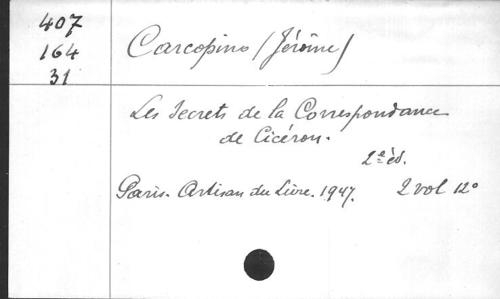 407
164
31
Carcopino (Jérôme)
Les Secrets de la Correspondance
de Cicéron.
2e éd.
Paris. Artisan du Livre. 1947. 2 vol 12°